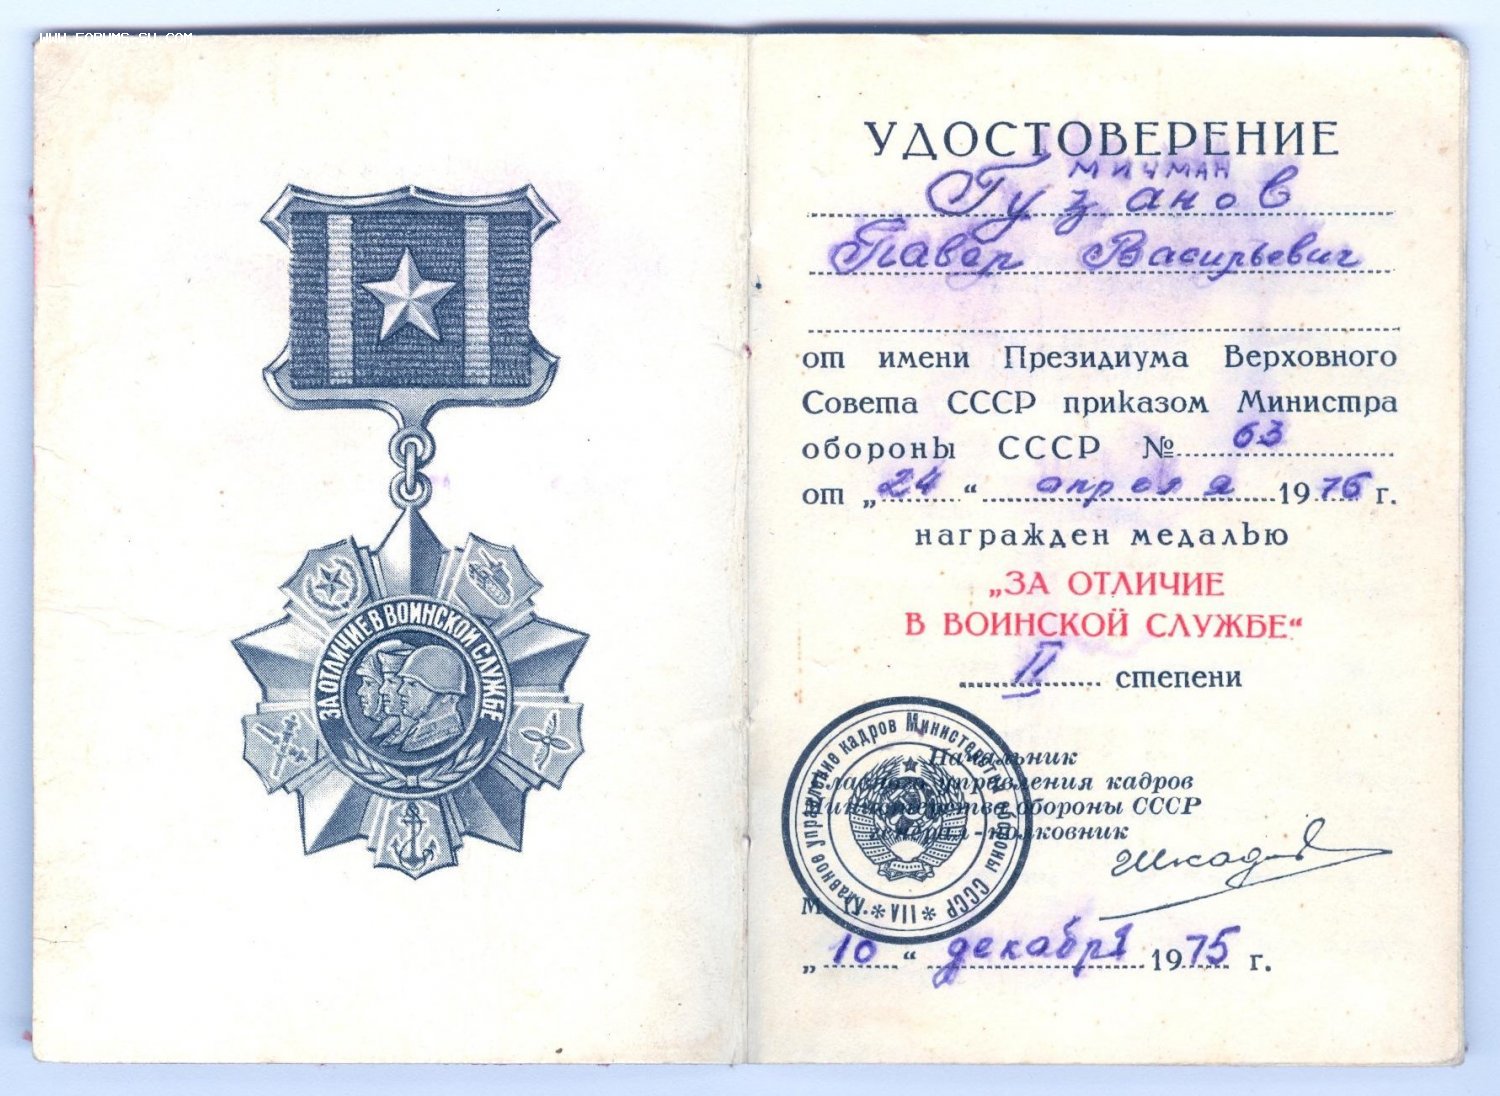 WWW.FORUMS-SU.COM
ЗА ОТЛИЧИЕ В ВОИНСКОЙ СЛУЖБЕ
УДОСТОВЕРЕНИЕ
МИЧМАН
Гузанов
Павел Васильевич
от имени Президиума Верховного
Совета СССР приказом Министра
обороны СССР № 63
от „24“ апреля 1976 г.
награжден медалью
„ЗА ОТЛИЧИЕ
В ВОИНСКОЙ СЛУЖБЕ“
II степени
Начальник
Главного управления кадров
Министерства обороны СССР
генерал-полковник
Главное управление кадров Министерства обороны СССР * IIА *
М.
„10“ декабря 1975 г.